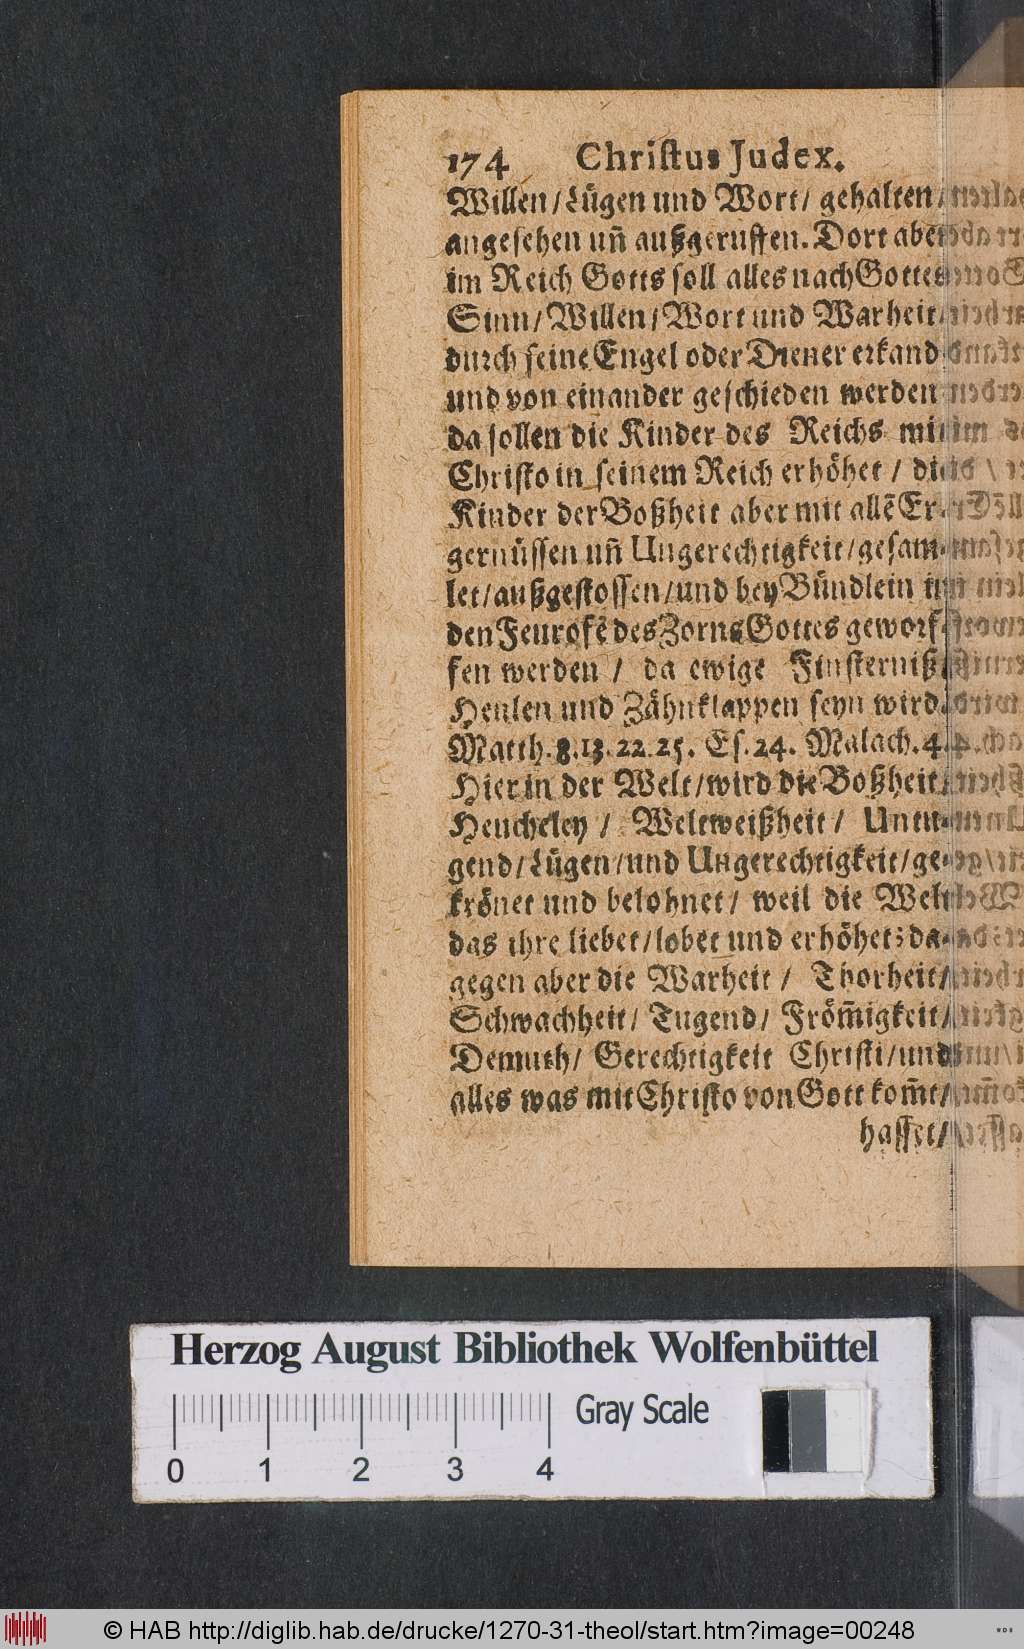 174 Christus Judex.
Willen/Lügen und Wort/ gehalten/
angesehen uñ außgeruffen. Dort aber
im Reich Gotts soll alles nach Gottes
Sinn/ Willen/ Wort und Warheit/
durch seine Engel oder Diener erkand
und von einander geschieden werden
da sollen die Kinder des Reichs mit
Christo in seinem Reich erhöhet / die
Kinder der Boßheit aber mit allẽ Er-
gernüssen uñ Ungerechtigkeit/gesam-
let/außgestossen/und bey Bündlein in
den Feurofẽ des Zorns Gottes geworf-
fen werden / da ewige Finsterniß/
Heulen und Zähnklappen seyn wird.
Matth. 8.13.22.25. Es. 24. Malach. 4.
Hier in der Welt/wird die Boßheit/
Heucheley / Weltweißheit / Untu-
gend/Lügen/und Ungerechtigkeit/ge-
krönet und belohnet/ weil die Welt
das ihre liebet/lobet und erhöhet; da-
gegen aber die Warheit / Thorheit/
Schwachheit/ Tugend/ Fröm̃igkeit/
Demuth/ Gerechtigkeit Christi/und
alles was mit Christo von Gott kom̃t/
hasset/
Herzog August Bibliothek Wolfenbüttel
Gray Scale
0 1 2 3 4
© HAB http://diglib.hab.de/drucke/1270-31-theol/start.htm?image=00248